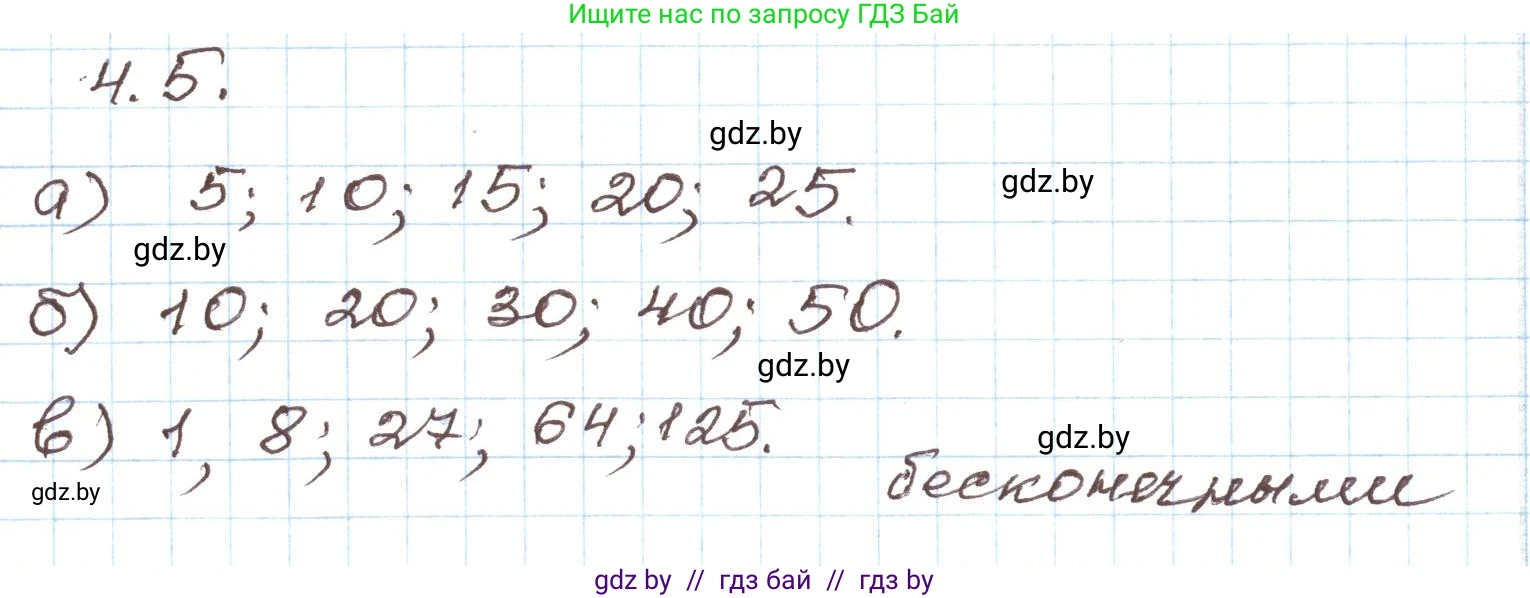 Ищите нас по запросу ГДЗ Бай
4.5.
gdz.by
а) 5; 10; 15; 20; 25.
gdz.by
gdz.by
б) 10; 20; 30; 40; 50.
gdz.by
в) 1, 8; 27; 64; 125.
gdz.by
gdz.by
бесконечными
gdz by // гдз бай // гдз by